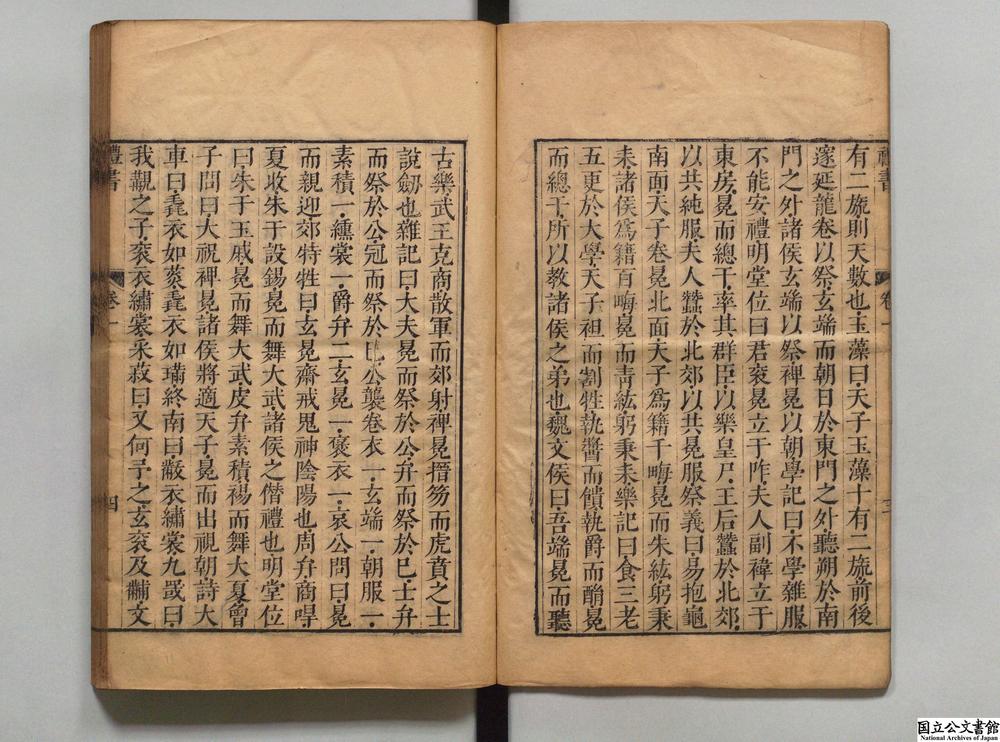 禮書
卷一
三
有二旒則天數也玉藻曰天子玉藻十有二旒前後
邃延龍卷以祭玄端而朝日於東門之外聽朔於南
門之外諸侯玄端以祭裨冕以朝學記曰不學雜服
不能安禮明堂位曰君衮冕立于阼夫人副褘立于
東房冕而總干率其群臣以樂皇尸王后蠶於北郊
以共純服夫人蠶於北郊以共冕服祭義曰易抱龜
南面天子卷冕北面天子爲籍千畮冕而朱紘躬秉
耒諸侯爲籍百畮冕而靑紘躬秉耒樂記曰食三老
五更於大學天子袒而割牲執醬而饋執爵而酳冕
而總干所以教諸侯之弟也魏文侯曰吾端冕而聽
古樂武王克商散軍而郊射裨冕搢笏而虎賁之士
說劒也雜記曰大夫冕而祭於公弁而祭於已士弁
而祭於公冠而祭於已公襲卷衣一玄端一朝服一
素積一纁裳一爵弁二玄冕一褒衣一哀公問曰冕
而親迎郊特牲曰玄冕齋戒鬼神陰陽也周弁商哻
夏收朱干設錫冕而舞大武諸侯之僭禮也明堂位
曰朱干玉戚冕而舞大武皮弁素積裼而舞大夏曾
子問曰大祝裨冕諸侯將適天子冕而出視朝詩大
車曰毳衣如菼毳衣如璊終南曰黻衣繡裳九罭曰
我觀之子衮衣繡裳采菽曰又何予之玄衮及黼文
禮書
卷一
四
国立公文書館
National Archives of Japan